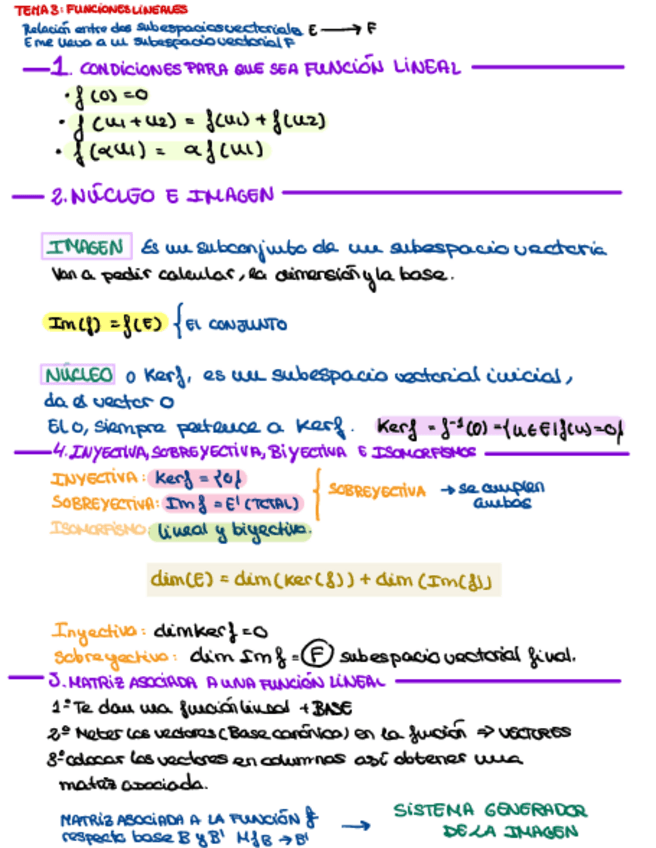 TEMA 3: FUNCIONES LINEALES
Relación entre dos subespacios vectoriales E → F
E me lleva a un subespacio vectorial F
1. CONDICIONES PARA QUE SEA FUNCIÓN LINEAL
· f(0) = 0
· f(u1 + u2) = f(u1) + f(u2)
· f(αu1) = αf(u1)
2. NÚCLEO E IMAGEN
IMAGEN Es un subconjunto de un subespacio vectoria
Van a pedir calcular, la dimensión y la base.
Im(f) = f(E) { EL CONJUNTO
NÚCLEO o Kerf, es un subespacio vectorial inicial,
da el vector 0
El 0, siempre pertenece a Kerf. Kerf = f⁻¹(0) = {u ∈ E | f(u) = 0}
4. INYECTIVA, SOBREYECTIVA, BIYECTIVA E ISOMORFISMOS
INYECTIVA: Kerf = {0}
SOBREYECTIVA: Im f = E' (TOTAL) { SOBREYECTIVA → se cumplen
ambas
ISOMORFISMO: lineal y biyectiva.
dim(E) = dim(Ker(f)) + dim(Im(f))
Inyectiva: dimkerf = 0
Sobreyectiva: dim Imf = F subespacio vectorial final.
3. MATRIZ ASOCIADA A UNA FUNCIÓN LINEAL
1º Te dan una función lineal + BASE
2º Meter los vectores (Base canónica) en la función ⇒ VECTORES
3º colocar los vectores en columnas así obtener una
matriz asociada.
MATRIZ ASOCIADA A LA FUNCIÓN f
respecto base B y B' MfB→B' → SISTEMA GENERADOR
DE LA IMAGEN